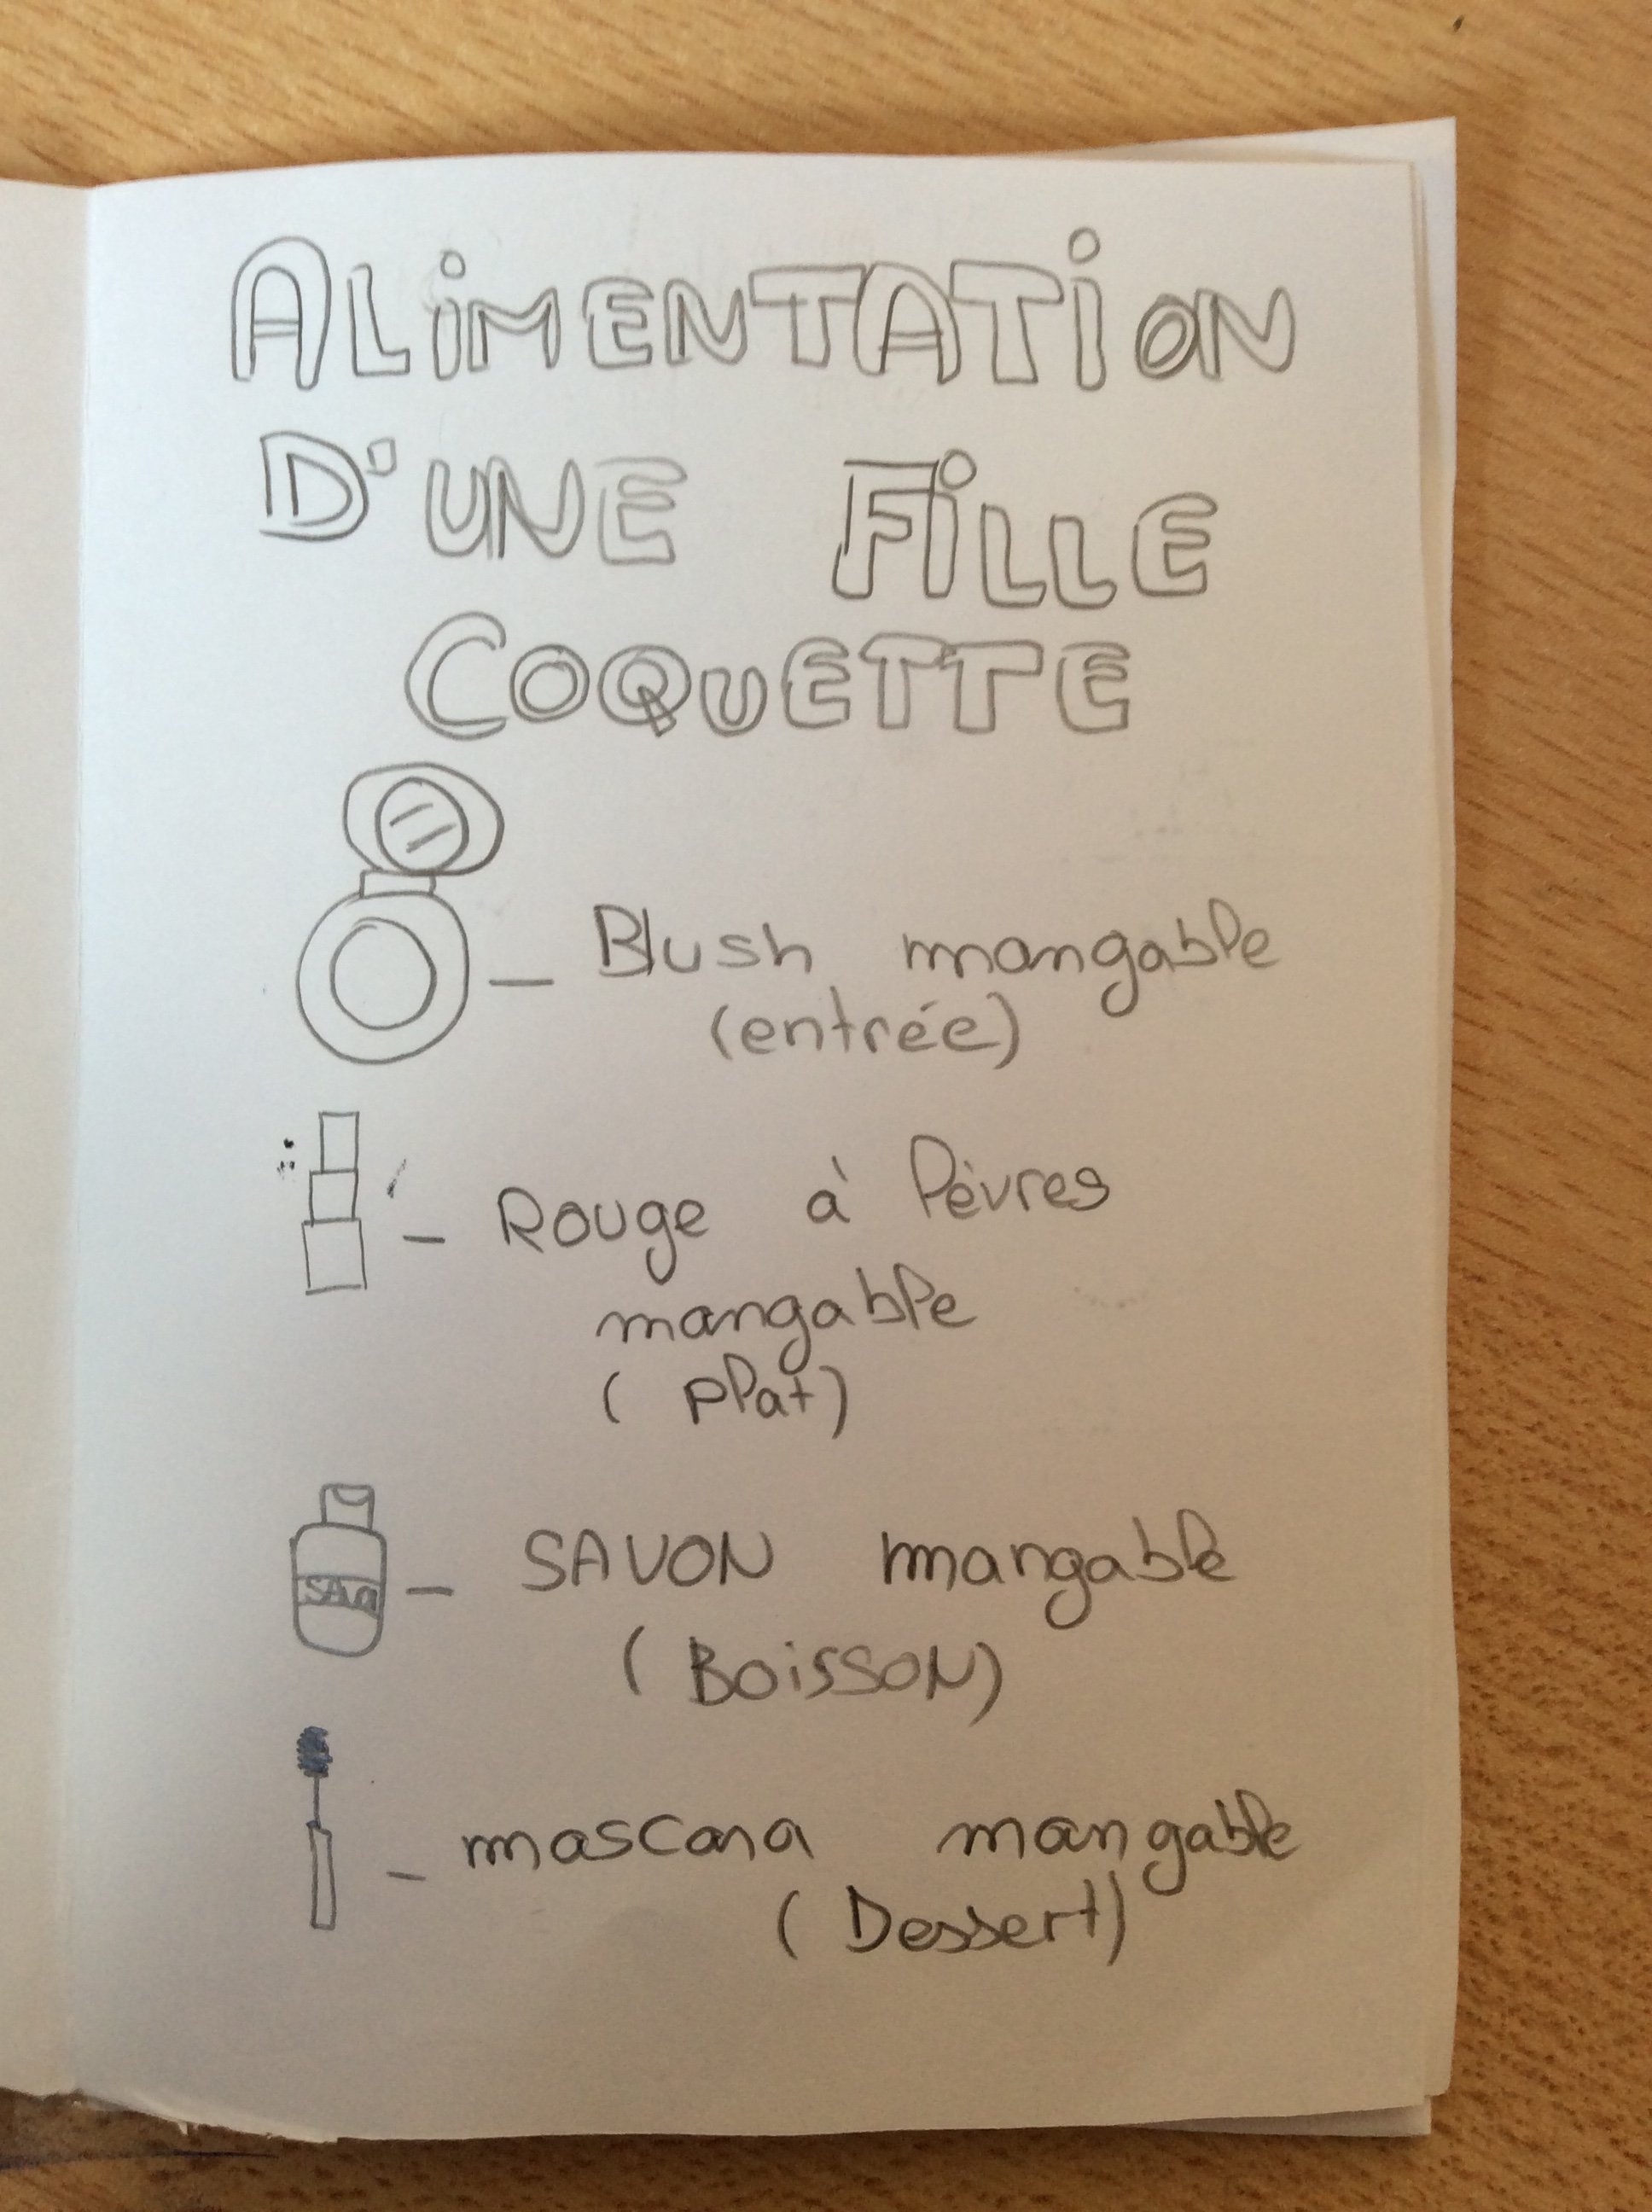 ALiMENTATiON
D'UNE FiLLE
COQuETTE
- Blush mangable
(entrée)
- Rouge à lèvres
mangable
(plat)
SAVO
- SAVON mangable
(BoissoN)
- mascara mangable
(Dessert)